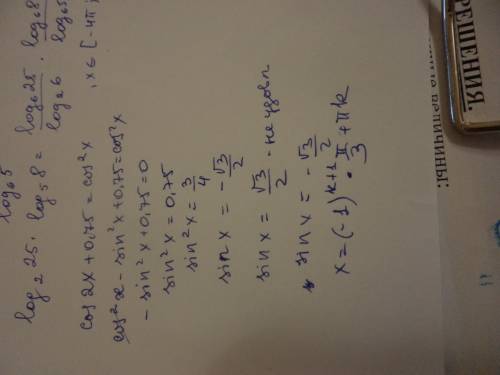 log₆5
log₂25 · log₅8 = log₆25/log₆2 · log₆8/log₆5
cos2x+0,75=cos²x , x∈[-4π;
cos²x - sin²x+0,75=cos²x
-sin²x+0,75=0
sin²x=0,75
sin²x=3/4
sin x = -√3/2
sin x = √3/2 - не удовл
sin x = -√3/2
x=(-1)ᵏ⁺¹ · π/3 + πk
РЕШЕНИЯ.